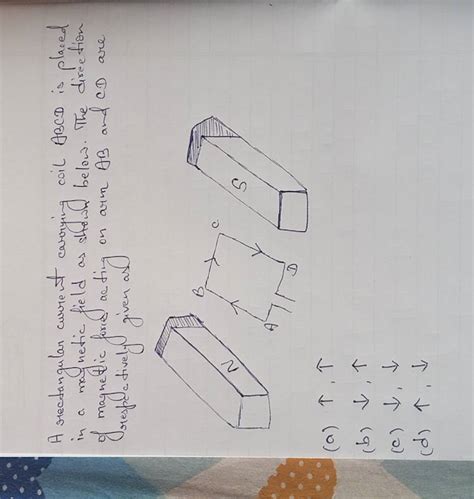 A rectangular current carrying coil ABCD is placed
in a magnetic field as shown below. The direction
of magnetic force acting on arm AB and CD are
respectively given as
N
S
A
B
C
D
(a) ↑, ↑
(b) ↓, ↑
(c) ↓, ↓
(d) ↑, ↓